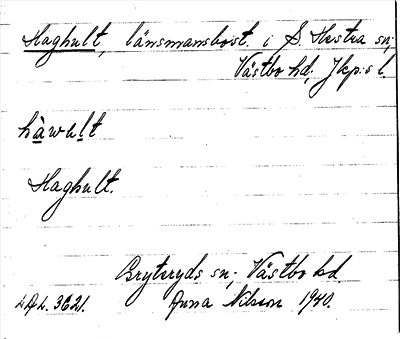 Haghult, länsmansbost. i S. Hestra sn;
Västbo hd, Jkp:s l.
hàwult
Haghult.
Bryteryds sn; Västbo hd.
LAL. 3621. Anna Nilsson 1940.